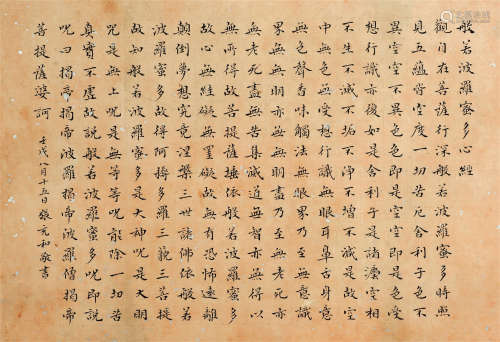 般若波羅蜜多心經
觀自在菩薩行深般若波羅蜜多時照
見五蘊皆空度一切苦厄舍利子色不
異空空不異色色即是空空即是色受
想行識亦復如是舍利子是諸灋空相
不生不滅不垢不淨不增不減是故空
中無色無受想行識無眼耳鼻舌身意
無色聲香味觸法無眼界乃至無意識
界無無明亦無無明盡乃至無老死亦
無老死盡無苦集滅道無智亦無得以
無所得故菩提薩埵依般若波羅蜜多
故心無罣礙無罣礙故無有恐怖遠離
顛倒夢想究竟涅槃三世諸佛依般若
波羅蜜多故得阿耨多羅三藐三菩提
故知般若波羅蜜多是大神咒是大明
咒是無上咒是無等等咒能除一切苦
真實不虛故說般若波羅蜜多咒即說
咒曰揭帝揭帝波羅揭帝波羅僧揭帝
菩提薩婆訶
壬戌八月十五日張元和敬書